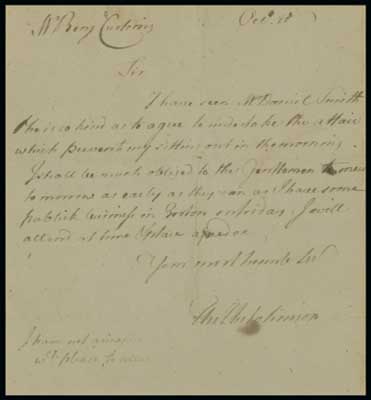 Mr Benj Cushing Oct. 18
Sir
I have seen Mr Daniel Smith
& he is so kind as to agree to undertake the affair
which prevents my sitting out in the morning
I shall be much obliged to the Gentlemen to meet
tomorrow as early as they can as I have some
publick business in Boston on friday I will
attend at time & place agreed on
Your most humble Ser
Tho Hutchinson
I have not
wt place to